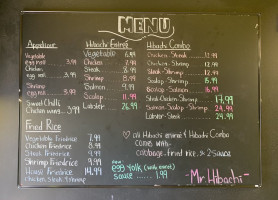 MENU
Appetizer
Vegetable
egg roll 3.99
Chicken
egg roll 3.99
Shrimp
egg roll 3.99
Sweet Chilli
Chicken wings 3.99
Fried Rice
Vegetable Friedrice 7.99
Chicken Friedrice 8.99
Steak Friedrice 9.99
Shrimp Friedrice 9.99
House Friedrice 14.99
Chicken, Steak, Shrimp
Hibachi Entree
Vegetable 6.99
Chicken 7.99
Steak 8.99
Shrimp 8.99
Salmon 9.99
Scallop 11.99
Lobster 26.99
Hibachi Combo
Chicken - Steak 12.99
Chicken - Shrimp 12.99
Steak - Shrimp 13.99
Scallop - Shrimp 15.99
Scallop - Salmon 16.99
Steak - Chicken - Shrimp 17.99
Salmon - Scallop - Shrimp 24.99
Lobster - Steak 29.99
all Hibachi entree & Hibachi Combo
come with
cabbage, fried rice, & 2 sauce
new
egg yolk
sauce 1.99
Mr. Hibachi